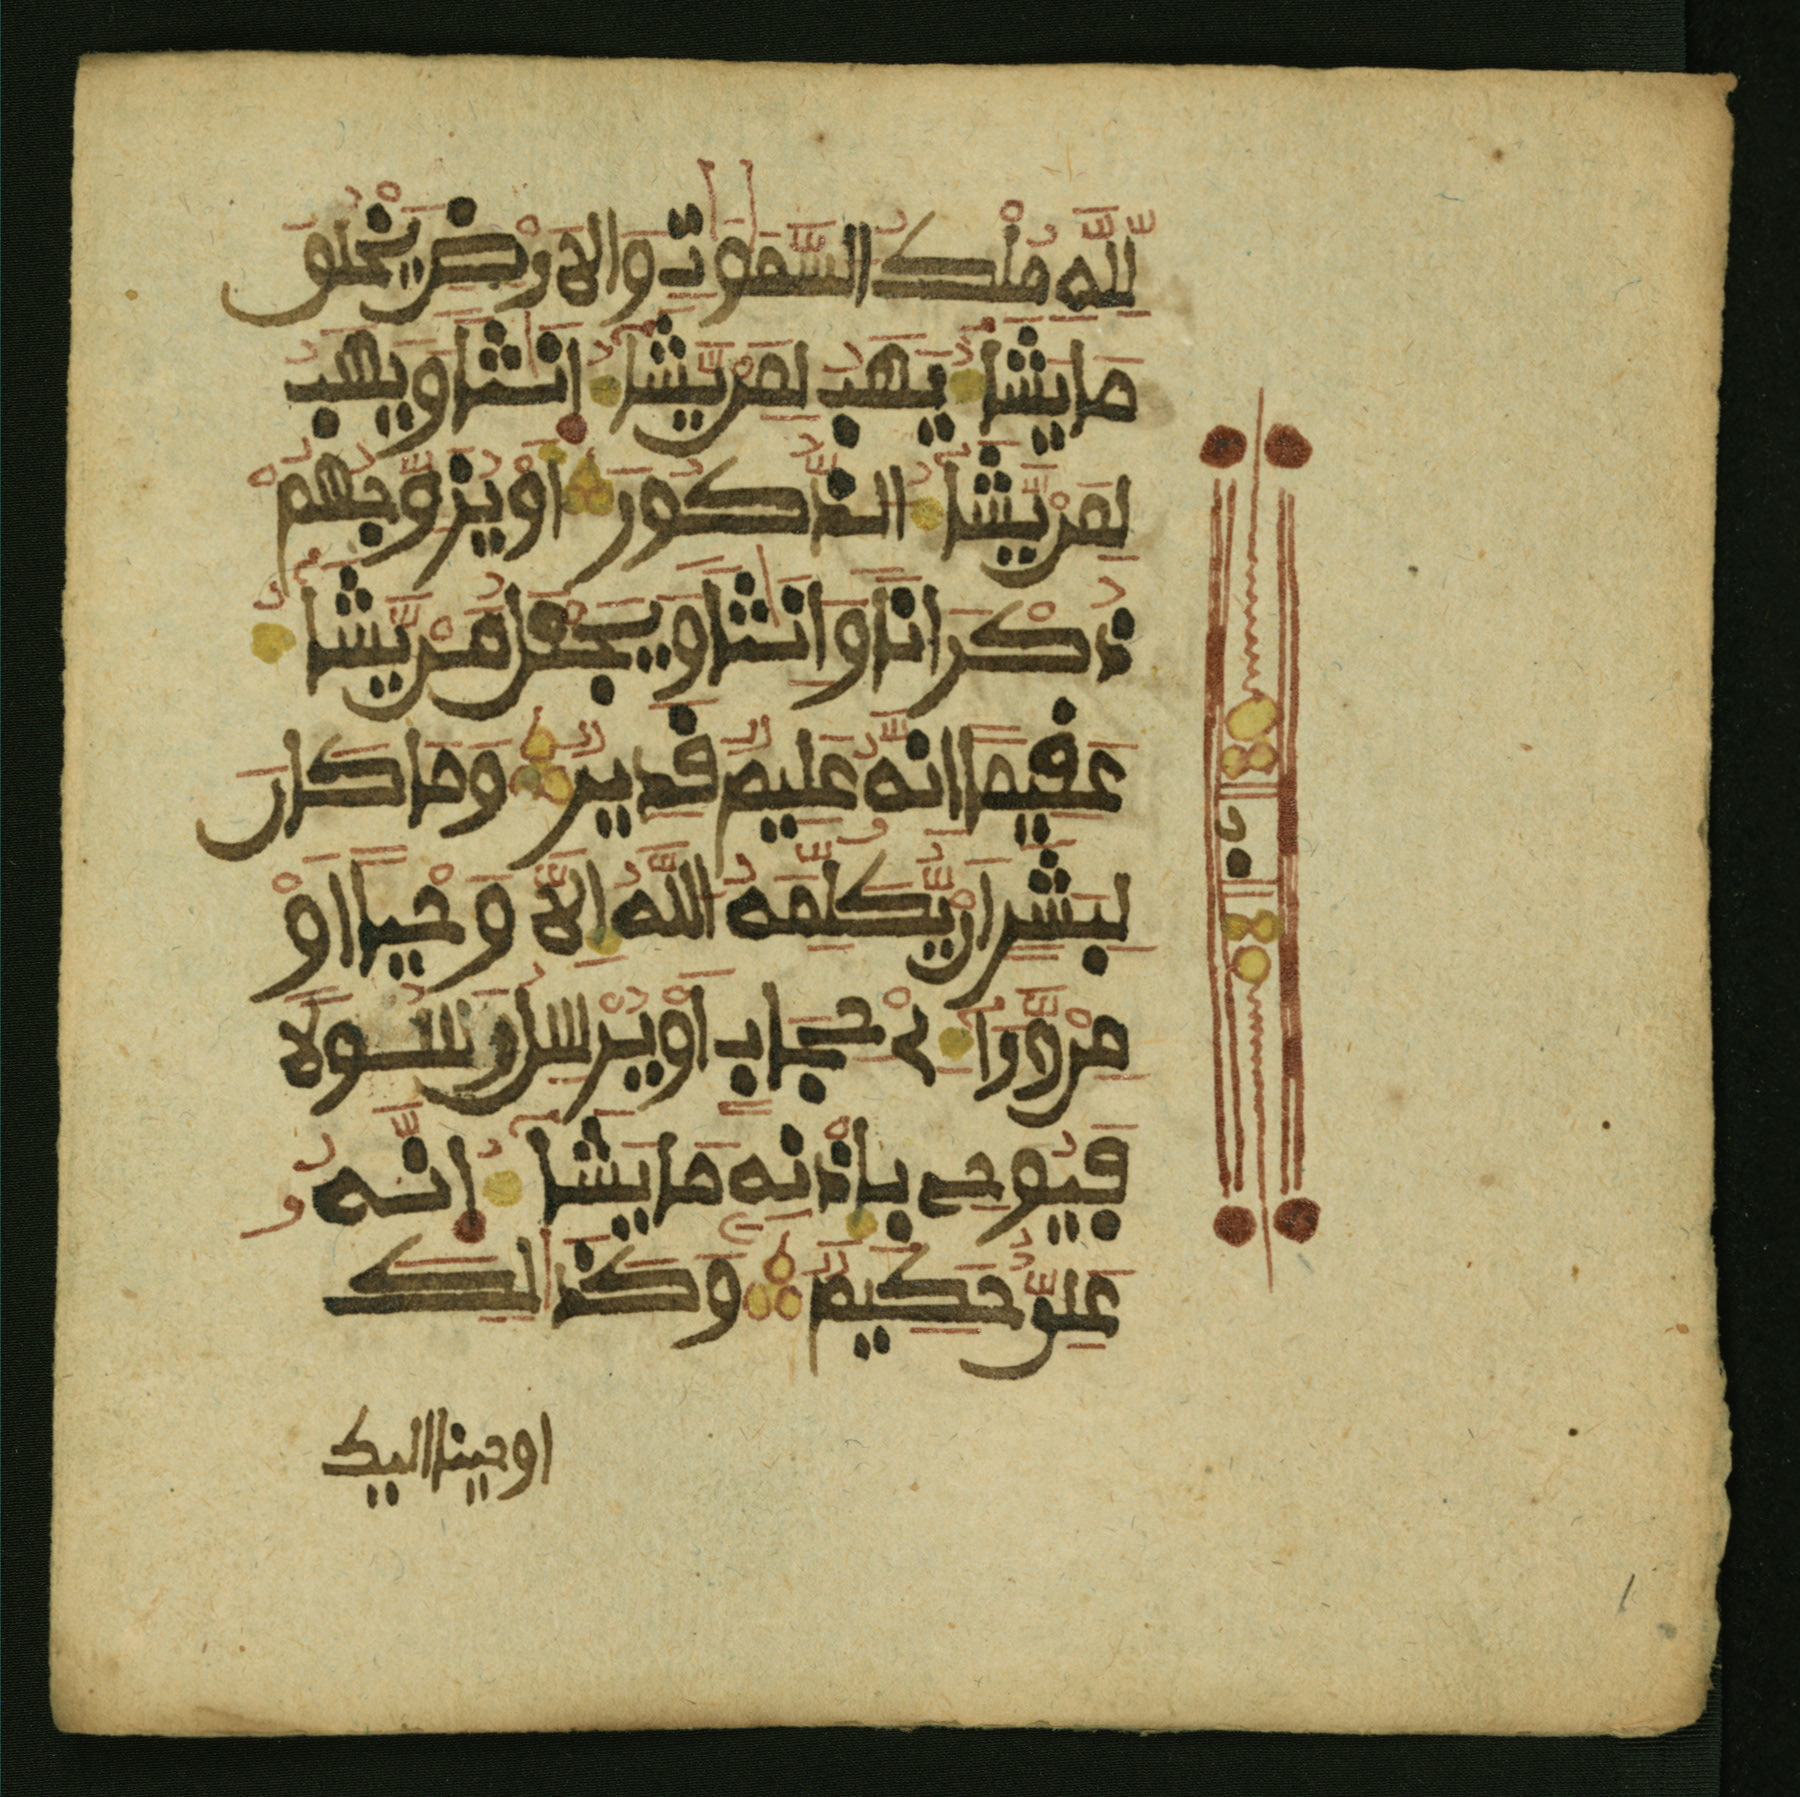 لِّلَّهِ مُلْكُ السَّمَٰوَٰتِ وَالاَرْضِ يَخْلُقُ
مَا يَشَاءُ يَهَبُ لِمَنْ يَّشَاءُ اِنَٰثاً وَيَهَبُ
لِمَنْ يَّشَاءُ الذُّكُورَ اَوْ يُزَوِّجُهُمْ
ذُكْرَاناً وَاِنَٰثاً وَيَجْعَلُ مَنْ يَّشَاءُ
عَقِيماً اِنَّهُ عَلِيمٌ قَدِيرٌ وَمَا كَانَ
لِبَشَرٍ اَنْ يُّكَلِّمَهُ اللَّهُ اِلاَّ وَحْياً اَوْ
مِنْ وَّرَاءِےْ حِجَابٍ اَوْ يُرْسِلُ رَسُولاً
فَيُوحِي بِاِذْنِهِ مَا يَشَاءُ اِنَّهُ
عَلِيٌّ حَكِيمٌ وَكَذَٰلِكَ
اوحينا اليك